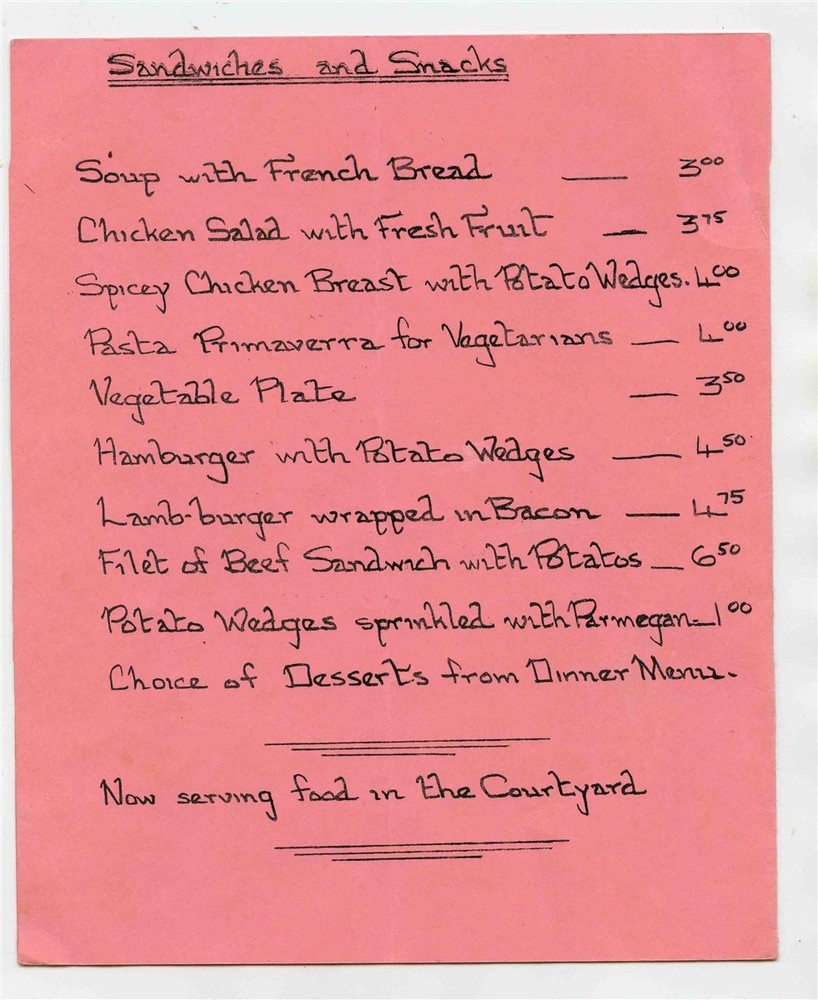 Sandwiches and Snacks
Soup with French Bread — 3.00
Chicken Salad with Fresh Fruit — 3.75
Spicey Chicken Breast with Potato Wedges. 4.00
Pasta Primaverra for Vegetarians — 4.00
Vegetable Plate — 3.50
Hamburger with Potato Wedges — 4.50
Lamb-burger wrapped in Bacon — 4.75
Filet of Beef Sandwich with Potatos — 6.50
Potato Wedges sprinkled with Parmegan — 1.00
Choice of Desserts from Dinner Menu.
Now serving food in the Courtyard